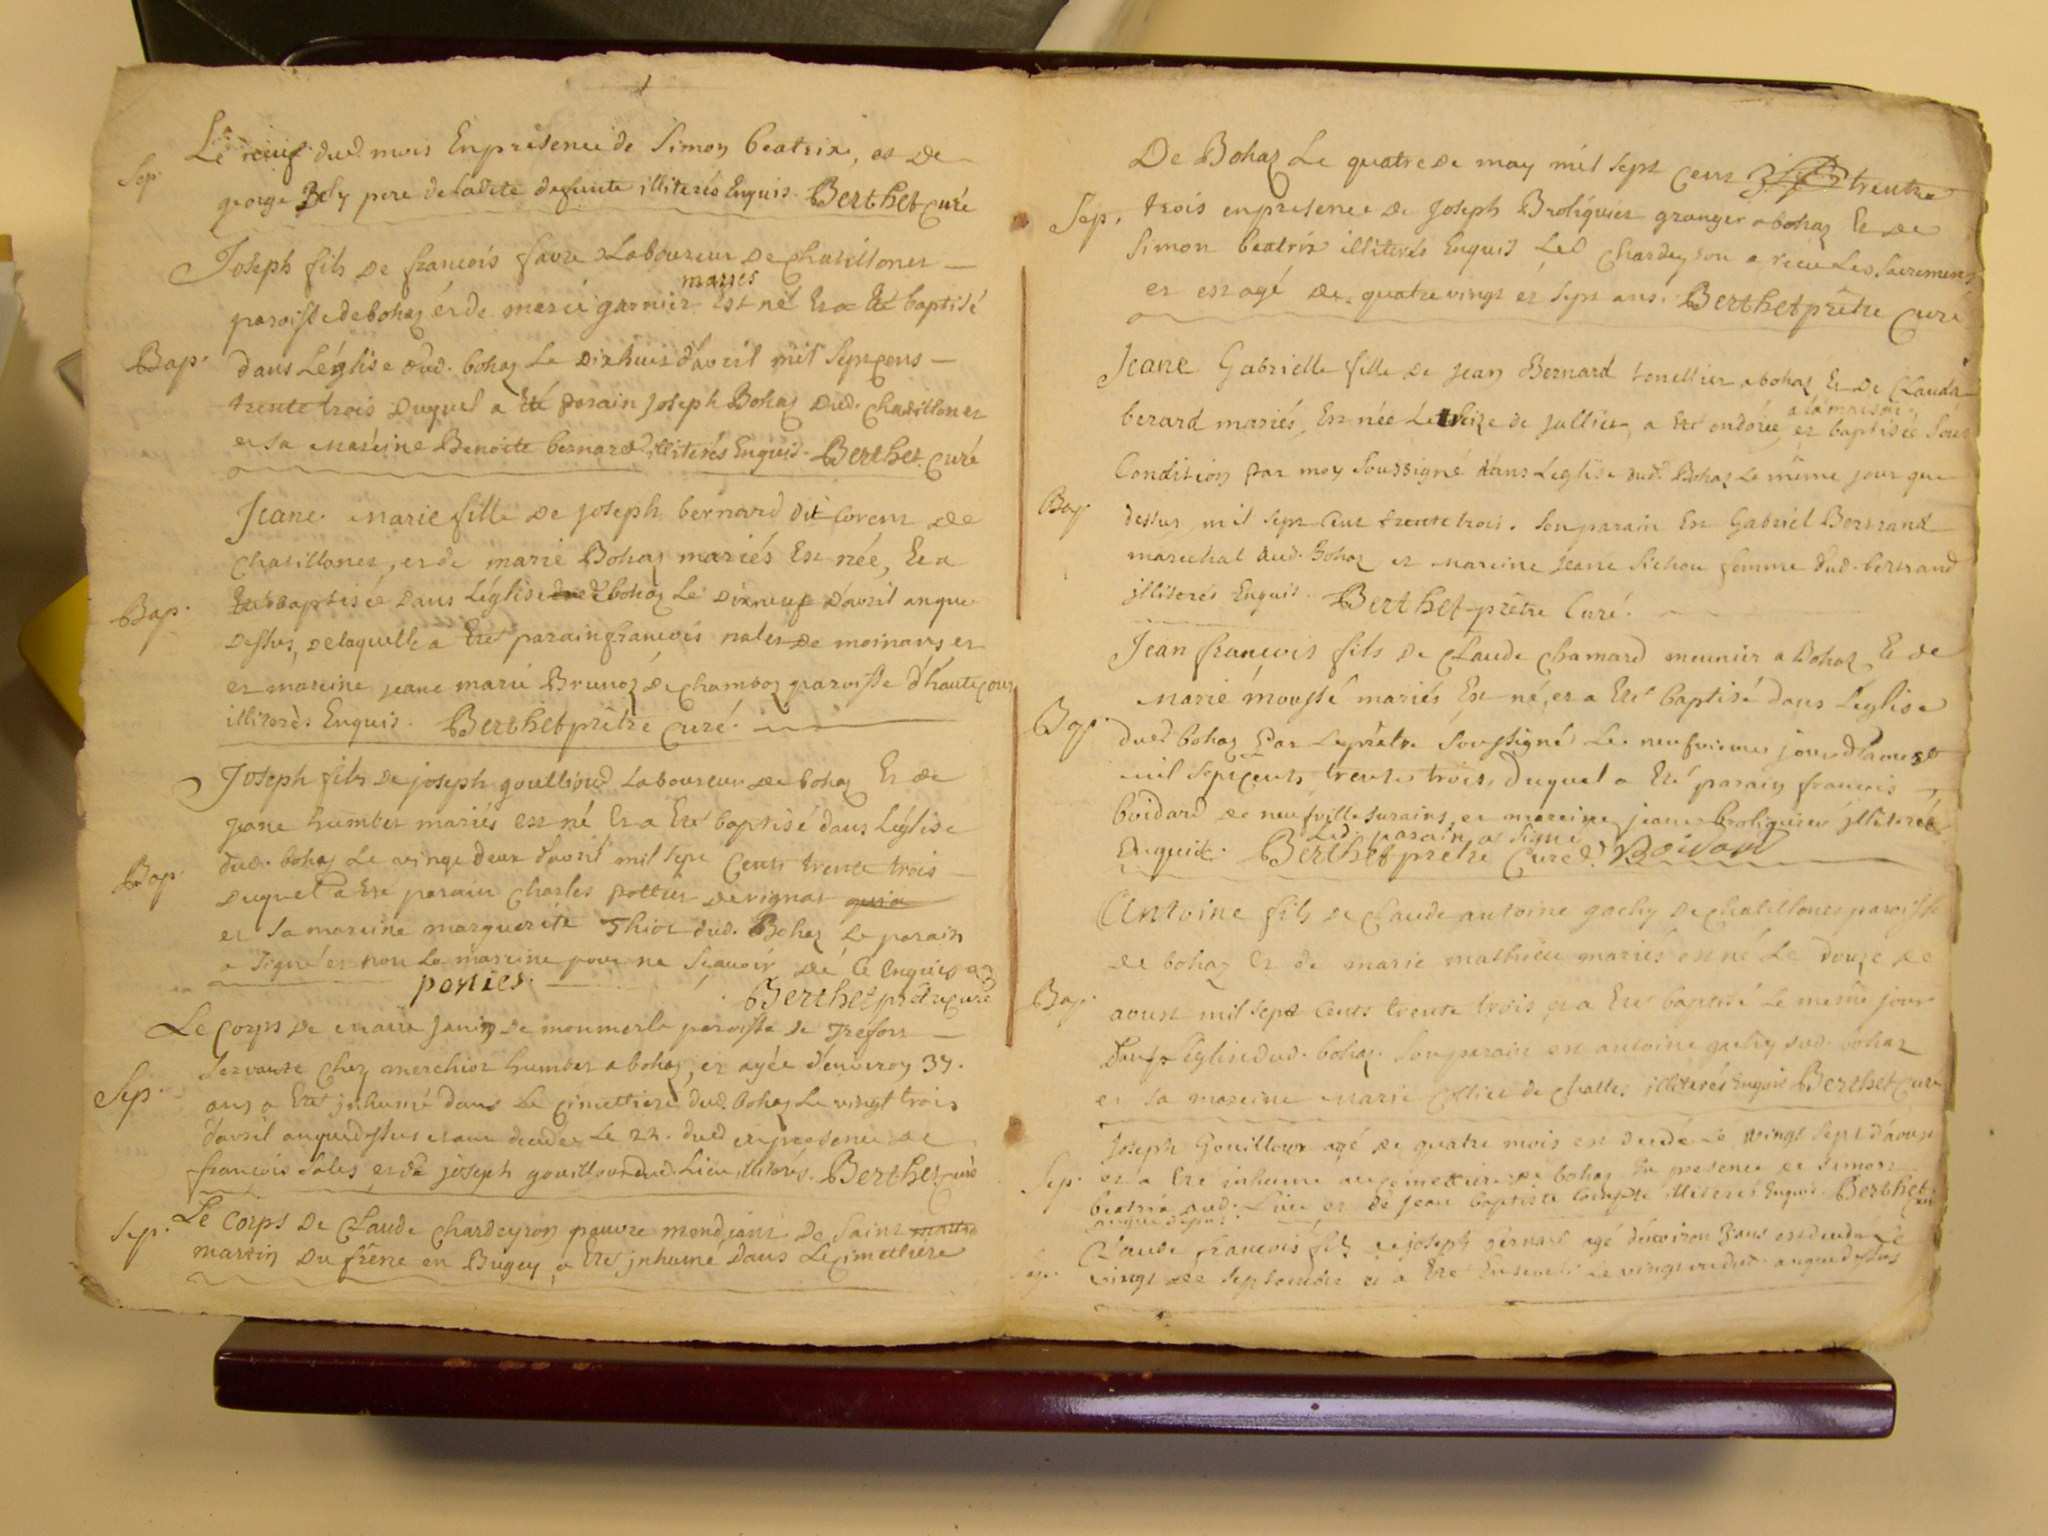 Sep.
Le neuf dud. mois Enpresence de Simon beatrix, et De
george Bely pere deladite defunte illiterés Enquis. Berthet curé
Joseph fils De francois favre Laboureur De chatillonet
mariés
paroisse de bohaz et de marie garnier Est né Et a Eté baptisé
Bap.
dans Léglise dud. bohaz Le Dixhuit d'avril mil Septcens
trente trois Duquel a Eté parain Joseph Bohaz dud. chatillonet
et sa mareine Benoite bernard illiterés Enquis. Berthet. Curé
Jeane marie fille De joseph bernard dit De
chatillonet, et de marie Bohaz mariés Est née, Et a
Bap.
Eté baptisée Dans Léglise dud bohaz Le Dixneuf d'avril anque
Dessus, Delaquelle a Eté parain francois De et
et mareine jeane marie Brunoz De chamboz paroisse d'hautecour
illiterés Enquis. Berthet prêtre Curé.
Joseph fils De joseph goullioud Laboureur De bohaz Et De
jeane humbet mariés est né Et a Eté baptisé dans Léglise
dud. bohaz Le vingt deux d'avril mil Sept Cents trente trois
Bap.
Duquel a Eté parain Charles De
et Sa mareine marguerite Thiot dud. Bohaz Le parain
a Signé et non La mareine pour ne Scavoir De Ce Enquis
Berthet prêtre Curé
Le Corps De marie De monmerle paroisse De Trefort
Servante chez merchior humbet a bohaz, et agée d'environ 37.
Sep.
ans a Eté inhumé dans Le cimettiere dud. bohaz Le vingt trois
d'avril anquedessus Le 22. dud enpresence De
francois et de joseph gouilloud dud. Lieu illiterés. Berthet curé
Sep.
Le Corps De Claude Chardeyron pauvre mendiant De Saint
martin Du frêne en Bugey, a Eté inhumé Dans Le Cimettiere
De Bohaz Le quatre De may mil Sept cens trente
Sep.
trois enpresence De Joseph Broliquier granger a bohaz Et De
Simon beatrix illiterés Enquis Led Chardeyron a recu Les Sacremens
et est agé De quatre vingt et Sept ans. Berthet prêtre Curé
Jeane Gabrielle fille De Jean Bernard tonellier a bohaz Et De Clauda
a la maison
berard mariés, Est née Le treize De juillet, a Eté ondoiée, et baptisée Sous
Condition par moy Soussigné dans Leglise dud. Bohaz Le même jour que
Bap.
dessus mil Sept Cens trente trois. Son parain Est Gabriel Bertrand
marechal dud. Bohaz et mareine Jeane femme dud. bertrand
illiterés Enquis. Berthet prêtre Curé.
Jean francois fils De Claude Chamard meunier a Bohaz Et De
marie moussé mariés Est né, et a Eté baptisé dans Léglise
Bap.
dud bohaz Par Leprêtre Soussigné Le neufvieme jour
mil Septcents trente trois Duquel a Eté parain francois
boidard De neufville Surains, et mareine jeane broliquier illiterés
Led. parain a Signé
Enquis. Berthet prêtre Curé.
Antoine fils De Claude antoine gachy De chatillonet paroisse
De bohaz Et De marie mathieu mariés est né Le douze De
Bap.
aoust mil Sept Cents trente trois et a Eté baptisé Le meme jour
dans Léglise dud. bohaz. Son parain est antoine gachy dud. bohaz
et Sa mareine marie De Challes illiterés Enquis Berthet Curé
Joseph Gouilloux agé De quatre mois est decedé Le vingt Sept d'aoust
Sep.
et a Eté inhumé au cimettiere De bohaz En presence De Simon
beatrix dud. Lieu et De Jean baptiste illiterés Enquis. Berthet
anque Dessus
Claude francois fils De joseph bernard agé d'environ 3 ans est decedé Le
vingt De Septembre et a Eté Enseveli Le vingt un dud. anquedessus